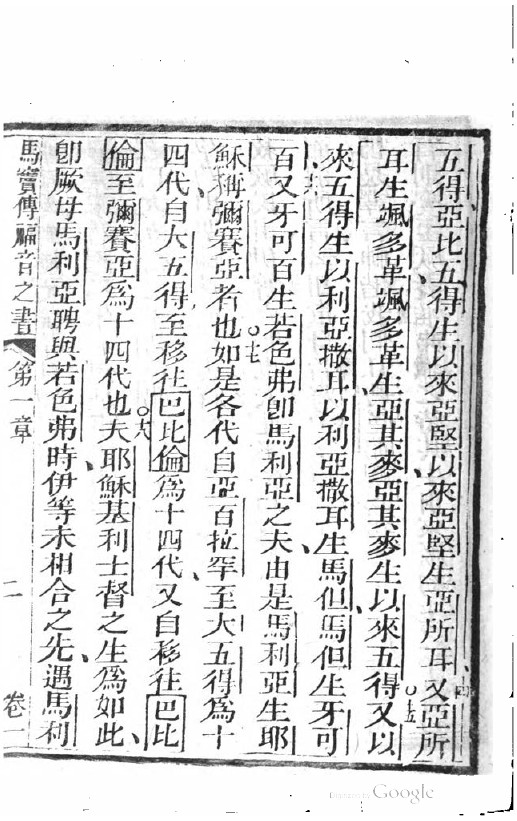 五得亞比五得生以來亞堅以來亞堅生亞所耳十四又亞所
耳生颯多革颯多革生亞其麥亞其麥生以來五得十五又以
來五得生以利亞撒耳以利亞撒耳生馬但馬但生牙可
百十六又牙可百生若色弗卽馬利亞之夫由是馬利亞生耶
穌稱彌賽亞者也十七如是各代自亞百拉罕至大五得爲十
四代自大五得至移徃巴比倫爲十四代又自移徃巴比
倫至彌賽亞爲十四代也十八夫耶穌基利士督之生爲如此
卽厥母馬利亞聘與若色弗時伊等未相合之先遇馬利
馬竇傳福音之書 第一章 二 卷一
Digitized by Google